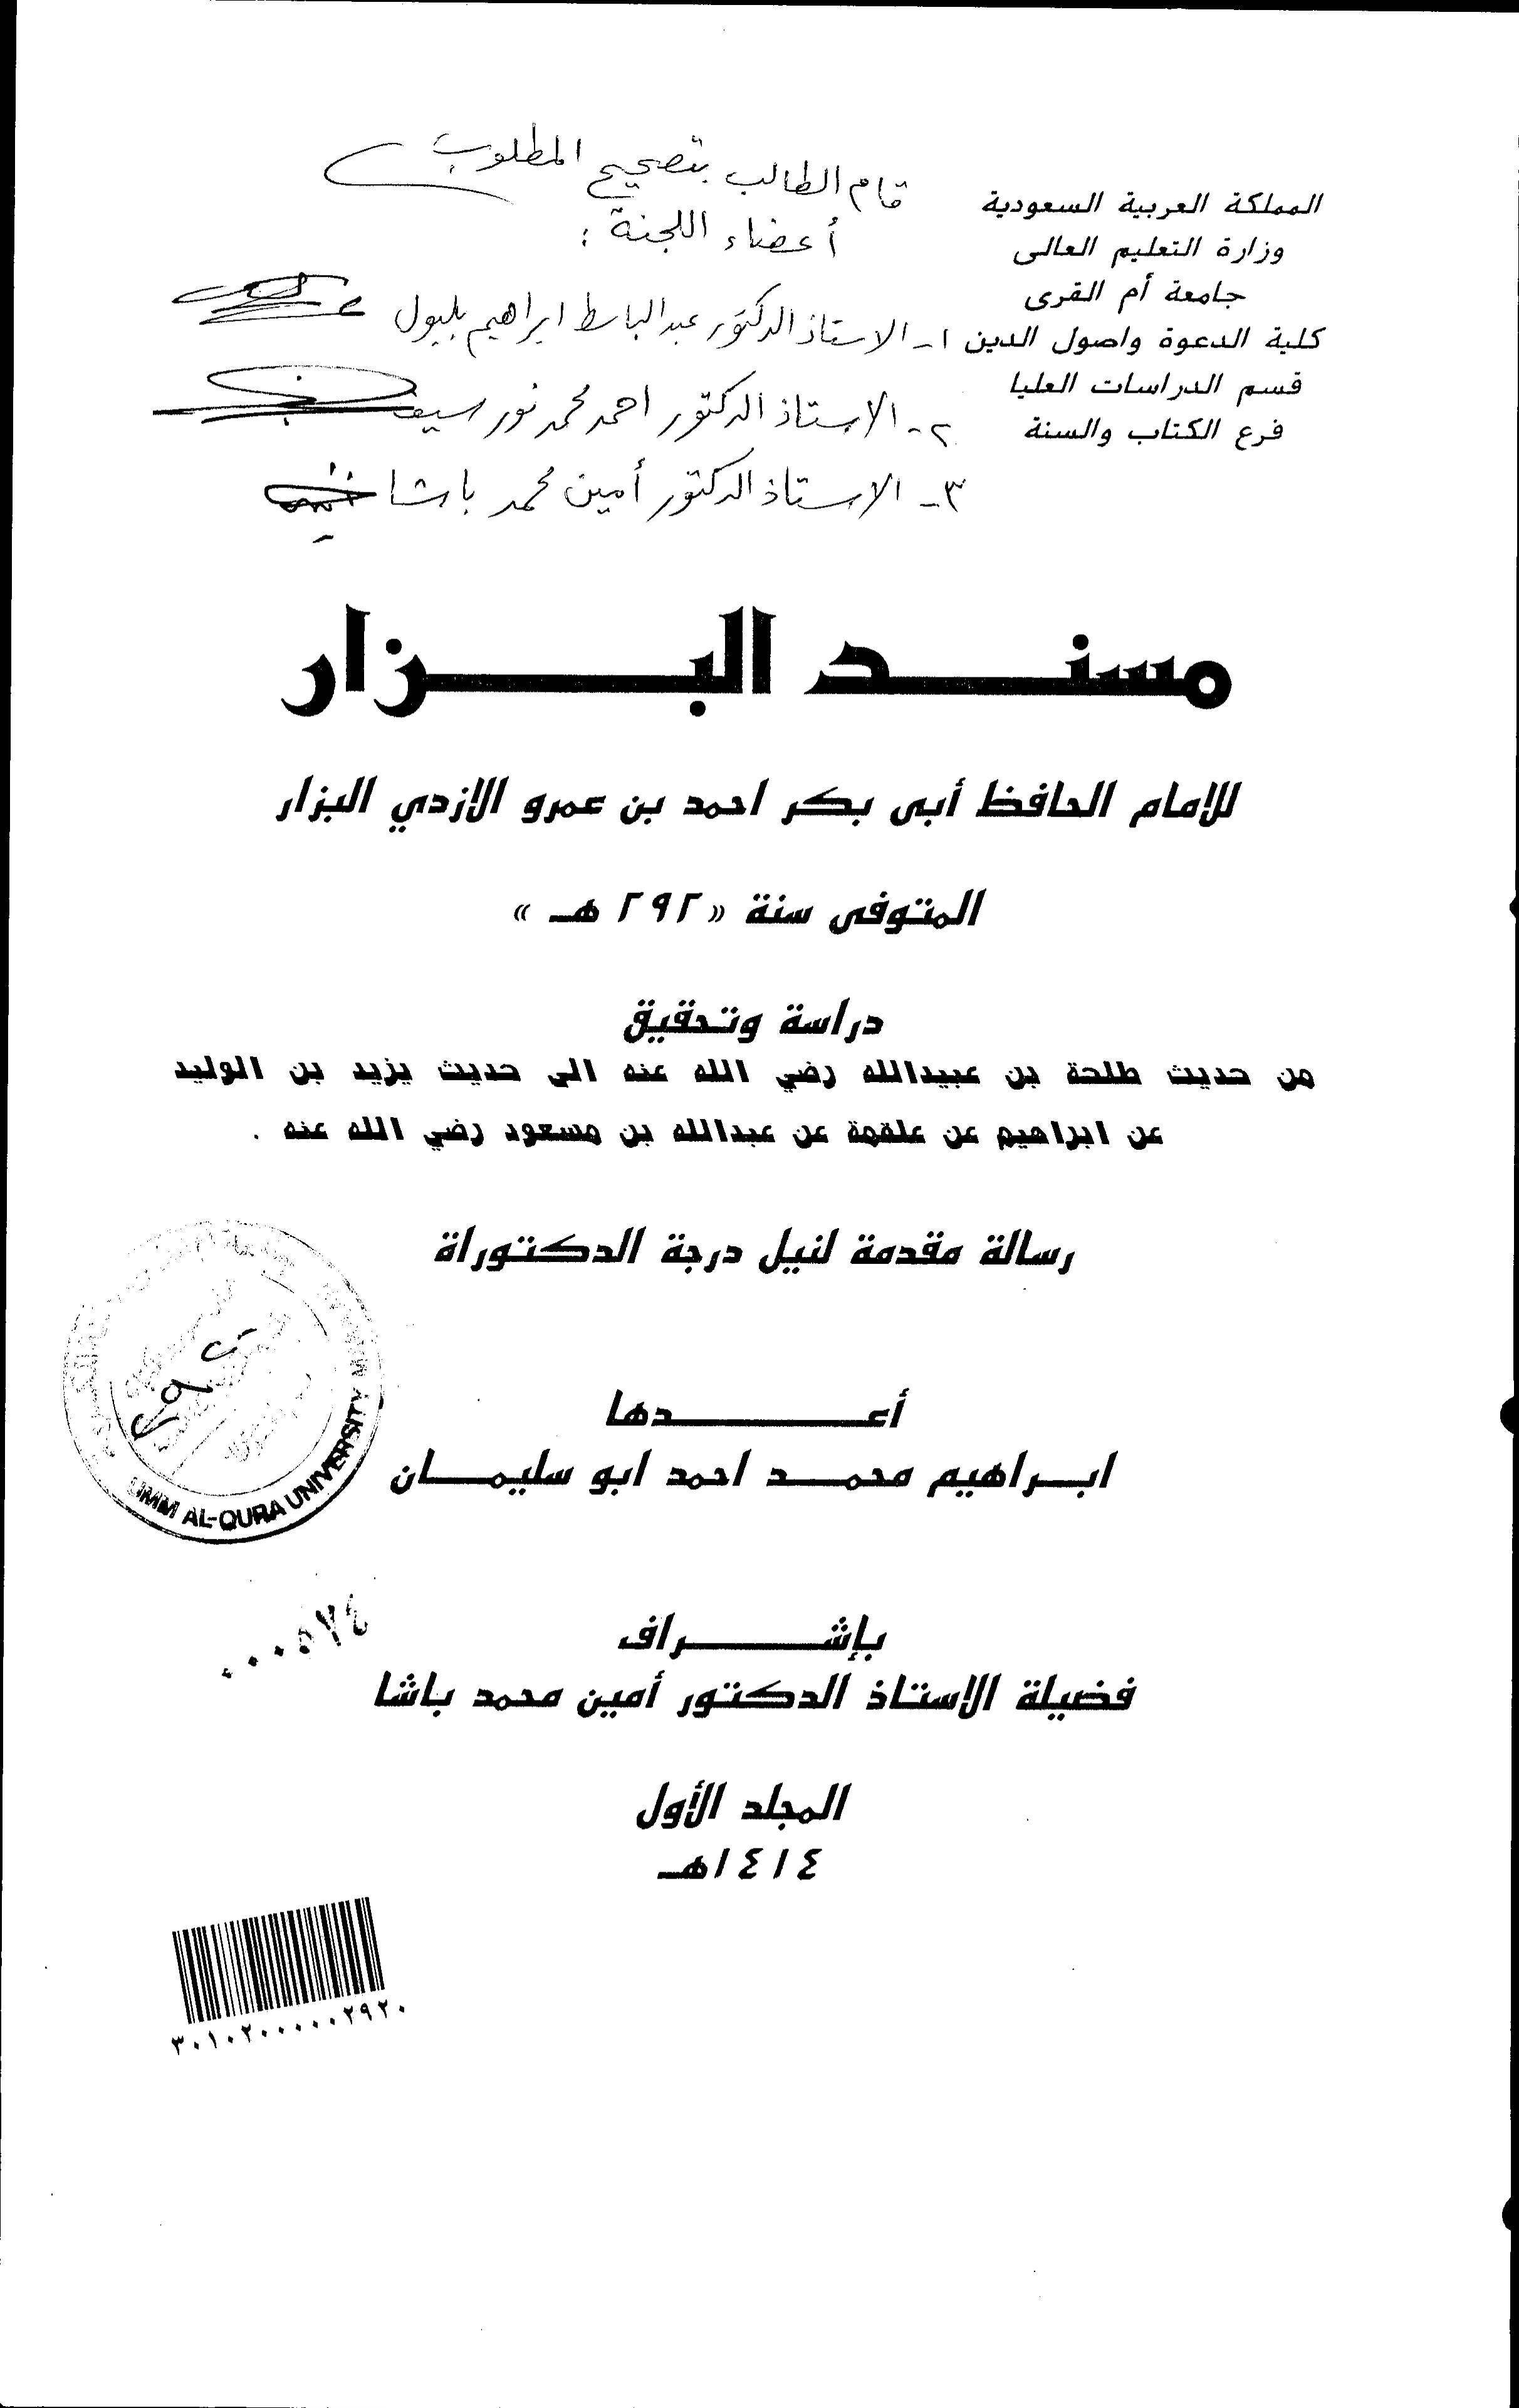 المملكة العربية السعودية
وزارة التعليم العالى
جامعة أم القرى
كلية الدعوة واصول الدين
قسم الدراسات العليا
فرع الكتاب والسنة
قام الطالب بتصحيح المطلوب
أعضاء اللجنة :
١- الاستاذ الدكتور عبدالباسط ابراهيم بلبول
٢- الاستاذ الدكتور احمد محمد نور سيف
٣- الاستاذ الدكتور أمين محمد باشا
مسند البزار
للإمام الحافظ أبى بكر احمد بن عمرو الازدي البزار
المتوفى سنة «٢٩٢ هـ »
دراسة وتحقيق
من حديث طلحة بن عبيدالله رضي الله عنه الى حديث يزيد بن الوليد
عن ابراهيم عن علقمة عن عبدالله بن مسعود رضي الله عنه .
رسالة مقدمة لنيل درجة الدكتوراة
أعدها
ابراهيم محمد احمد ابو سليمان
UMM AL-QURA UNIVERSITY
بإشراف
فضيلة الاستاذ الدكتور أمين محمد باشا
المجلد الأول
١٤١٤هـ
٣٠١٠٢٠٠٠٠٠٢٩٢٠